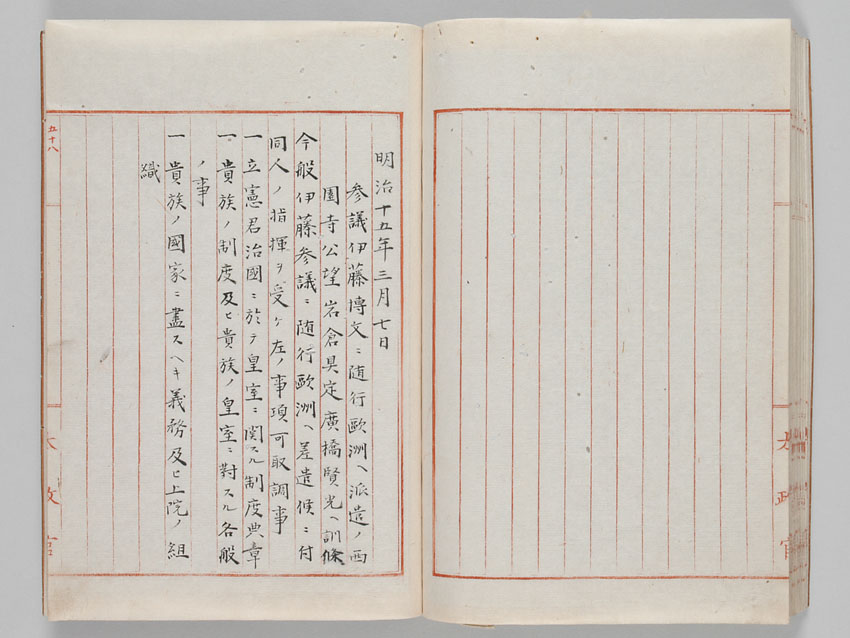 太政官
明治十五年三月七日
参議伊藤博文ニ随行歐洲ヘ派遣ノ西
園寺公望岩倉具定廣橋賢光ヘ訓條
今般伊藤参議ニ随行歐洲ヘ差遣候ニ付
同人ノ指揮ヲ受ケ左ノ事項可取調事
一立憲君治國ニ於テ皇室ニ関スル制度典章
一貴族ノ制度及ヒ貴族ノ皇室ニ對スル各般
ノ事
一貴族ノ國家ニ盡スヘキ義務及ヒ上院ノ組
織
五十八
太政官